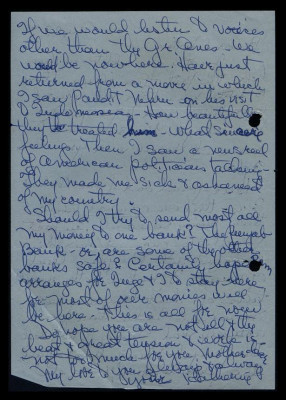 If we would listen to voices
other than the Jr. ones. We
would be nowhere. Have just
returned from a movie in which
I saw Pandit Nehru on his visit
to Indonesia. How beautifully
they treated him. What sincere
feeling. Then I saw a newsreel
of American politicians talking.
They made me sick & ashamed
of my country.
Should I try to send most all
my money to one bank? The
Bank - or are some of the other
banks safe? Certainly
arranges for Inge & I to stay here
for most of our monies will
be here. This is all for now
Do hope you are not ill & the
heat & great tension & work is
not too much for you, Mother dear
My love to you always
your Katharine